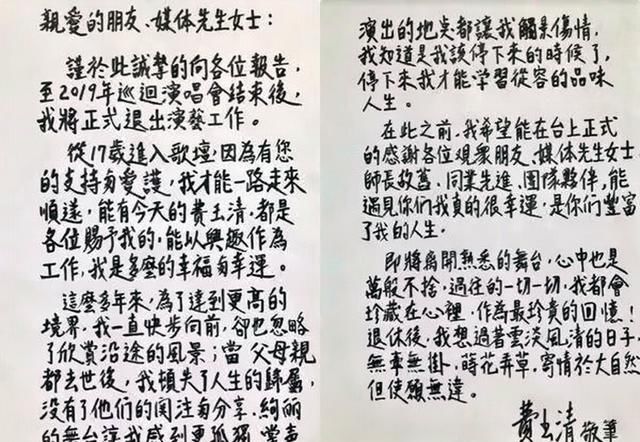 親愛的朋友、媒体先生女士：
謹於此誠摯的向各位報告，
至2019年巡迴演唱會結束後，
我將正式退出演藝工作。
從17歲進入歌壇，因為有您
的支持與愛護，我才能一路走來
順遂，能有今天的費玉清，都是
各位賜予我的，能以興趣作為
工作，我是多麼的幸福與幸運。
這麼多年來，為了達到更高的
境界，我一直快步向前，卻也忽略
了欣賞沿途的風景；當父母親
都去世後，我頓失了人生的歸屬，
沒有了他們的関注與分享，絢麗
的舞台讓我感到更孤獨
演出的地点都讓我觸景傷情，
我知道是我該停下來的時候了，
停下來我才能学習從容的品味
人生。
在此之前，我希望能在台上正式
的感謝各位观眾朋友、媒体先生女士、
師長故舊、同業先進、团隊夥伴，能
遇見你們我真的很幸運，是你們豐富
了我的人生。
即將離開熟悉的舞台，心中也是
萬般不捨，過往的一切一切，我都會
珍藏在心裡，作為最珍貴的回憶！
退休後，我想過著雲淡風清的日子，
無事無掛，蒔花弄草，寄情於大自然
但使願無違。
費玉清 敬筆